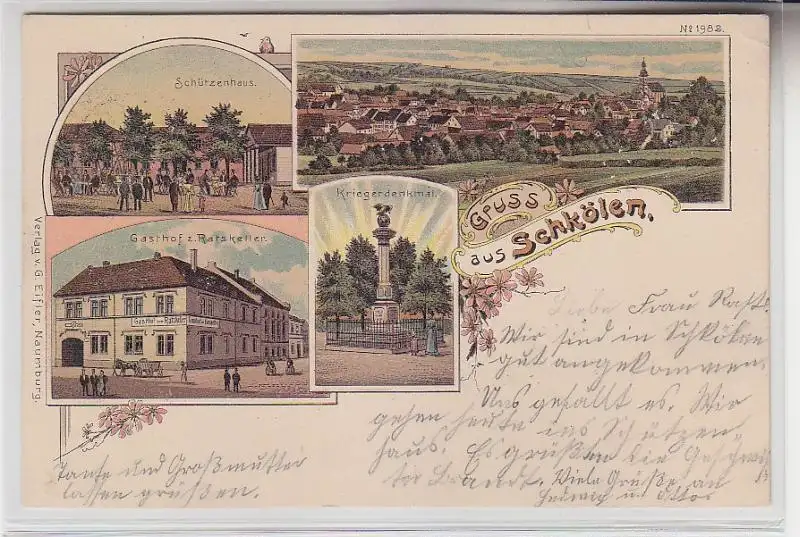 No 1982.
Schützenhaus.
Kriegerdenkmal.
Gruss
aus Schkölen.
Gasthof z. Ratskeller.
Gasthof zum Ratskeller
Verlag v. G. Eifler, Naumburg.
Liebe Frau
Wir sind in Schkölen
gut angekommen.
Uns gefällt es. Wir
gehen heute ins Schützen„
haus. Es grüßen die
Brandt. Viele Grüße an
Hedwig u. Ottos
Tante und Großmutter
lassen grüßen.